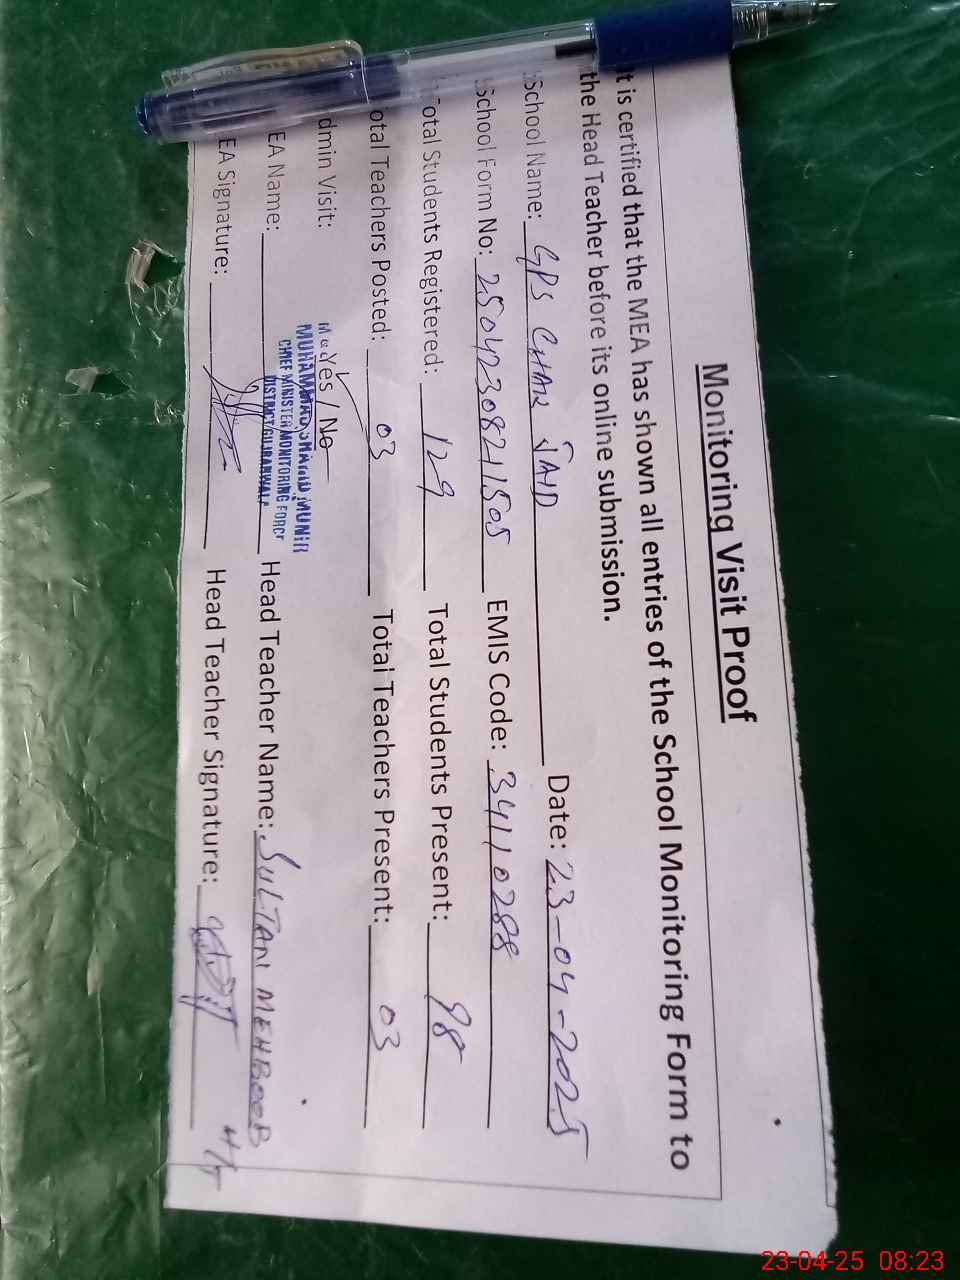 Monitoring Visit Proof
t is certified that the MEA has shown all entries of the School Monitoring Form to
the Head Teacher before its online submission.
School Name: GPS CHAK SAID Date: 23-04-2025
School Form No: 25042308211505 EMIS Code: 34110288
Total Students Registered: 129 Total Students Present: 98
otal Teachers Posted: 03 Total Teachers Present: 03
dmin Visit: Yes / No
EA Name: MUHAMMAD SHAHID MUNIR Head Teacher Name: SULTAN MEHBOOB
CHIEF MINISTER MONITORING FORCE
DISTRICT GUJRANWALA
EA Signature: Head Teacher Signature:
23-04-25 08:23